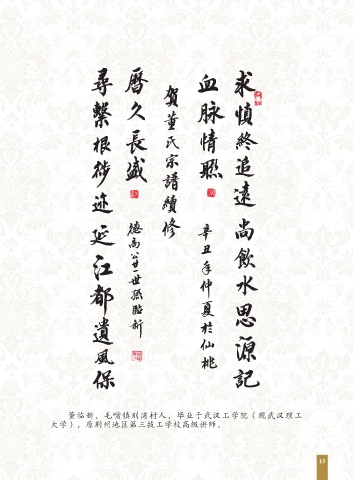 求慎終追遠尚飲水思源記
血脉情聯
辛丑年仲夏於仙桃
賀董氏宗譜續修
曆久長盛
德高公廿一世孫臨新
尋繫根徙迹延江都遺風保
董临新，毛嘴镇别湾村人，毕业于武汉工学院（现武汉理工
大学），原荆州地区第三技工学校高级讲师。
15